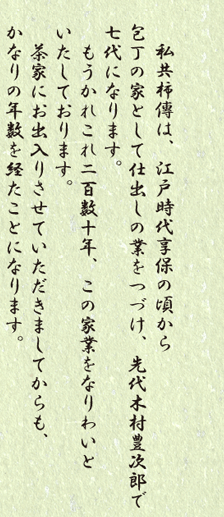 私共柿傳は、江戸時代享保の頃から
包丁の家として仕出しの業をつづけ、先代木村豊次郎で
七代になります。
もうかれこれ二百数十年、この家業をなりわいと
いたしております。
茶家にお出入りさせていただきましてからも、
かなりの年数を経たことになります。